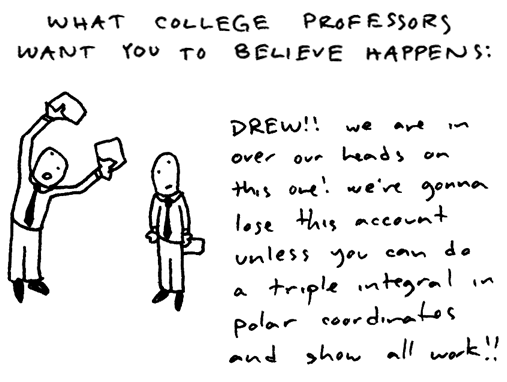 WHAT COLLEGE PROFESSORS
WANT YOU TO BELIEVE HAPPENS:
DREW!! we are in
over our heads on
this one! we're gonna
lose this account
unless you can do
a triple integral in
polar coordinates
and show all work!!